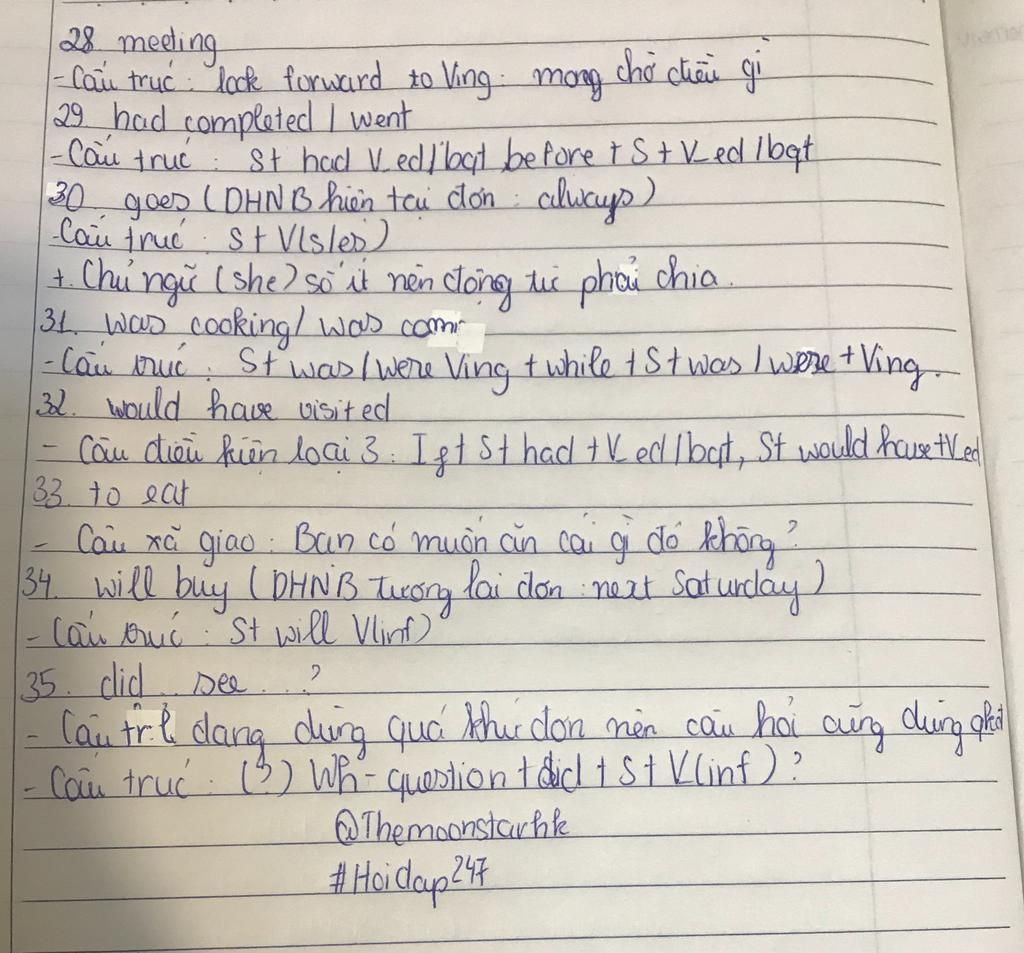 28 meeting
- Cấu trúc : look forward to Ving : mong chờ điều gì
29 had completed / went
- Cấu trúc : S+ had V_ed/bqt before + S + V_ed/bqt
30 goes (DHNB hiện tại đơn : always)
- Cấu trúc : S+ V(s/es)
+. Chủ ngữ (she) số ít nên động từ phải chia.
31. was cooking/ was
- Cấu trúc : S+ was/were Ving + while + S + was / were + Ving.
32. would have visited
- Câu điều kiện loại 3 : If + S+ had + V_ed/bqt, S+ would have +Ved
33. to eat
- Câu xã giao : Bạn có muốn ăn cái gì đó không?
34. will buy (DHNB Tương lai đơn : next Saturday)
- Cấu trúc : S+ will V(inf)
35. did .. see ... ?
- Câu đang dùng quá khứ đơn nên câu hỏi cũng dùng qkđ
- Cấu trúc : (?) Wh-question + did + S + V(inf) ?
@Themoonstarhk
#Hoidap247